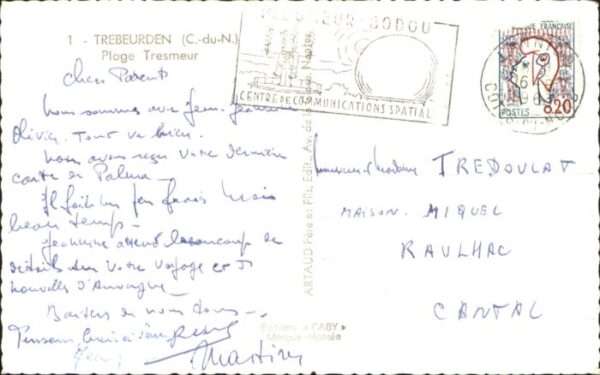 1 - TREBEURDEN (C.-du-N.)
Plage Tresmeur
Chers Parents
Nous sommes avec Jean. Jeannine
Olivier. Tout va bien.
Nous avons reçu votre dernière
carte de Palma -
Il fait un peu frais mais
beau temps -
Jeannine attend beaucoup de
détails sur votre voyage et
nouvelles d'Auvergne -
Baisers de nous tous -
Martine
BODOU
CENTRE DE COMMUNICATIONS SPATIALES
FRANÇAISE
POSTES
0,20
ARTAUD Père et Fils, Edit., Nantes
Editions « GABY »
Marque déposée
Monsieur et Madame TREDOULAT
MAISON. MIQUEL
RAULHAC
CANTAL